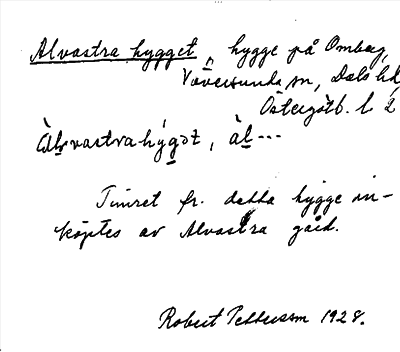 Alvastra hygget, hygge på Omberg,
Väversunda sn, Dals hd,
Östergötl. l.
àlvastrahýgət, àl---
Timret fr. detta hygge in-
köptes av Alvastra gård.
Robert Pettersson 1928.